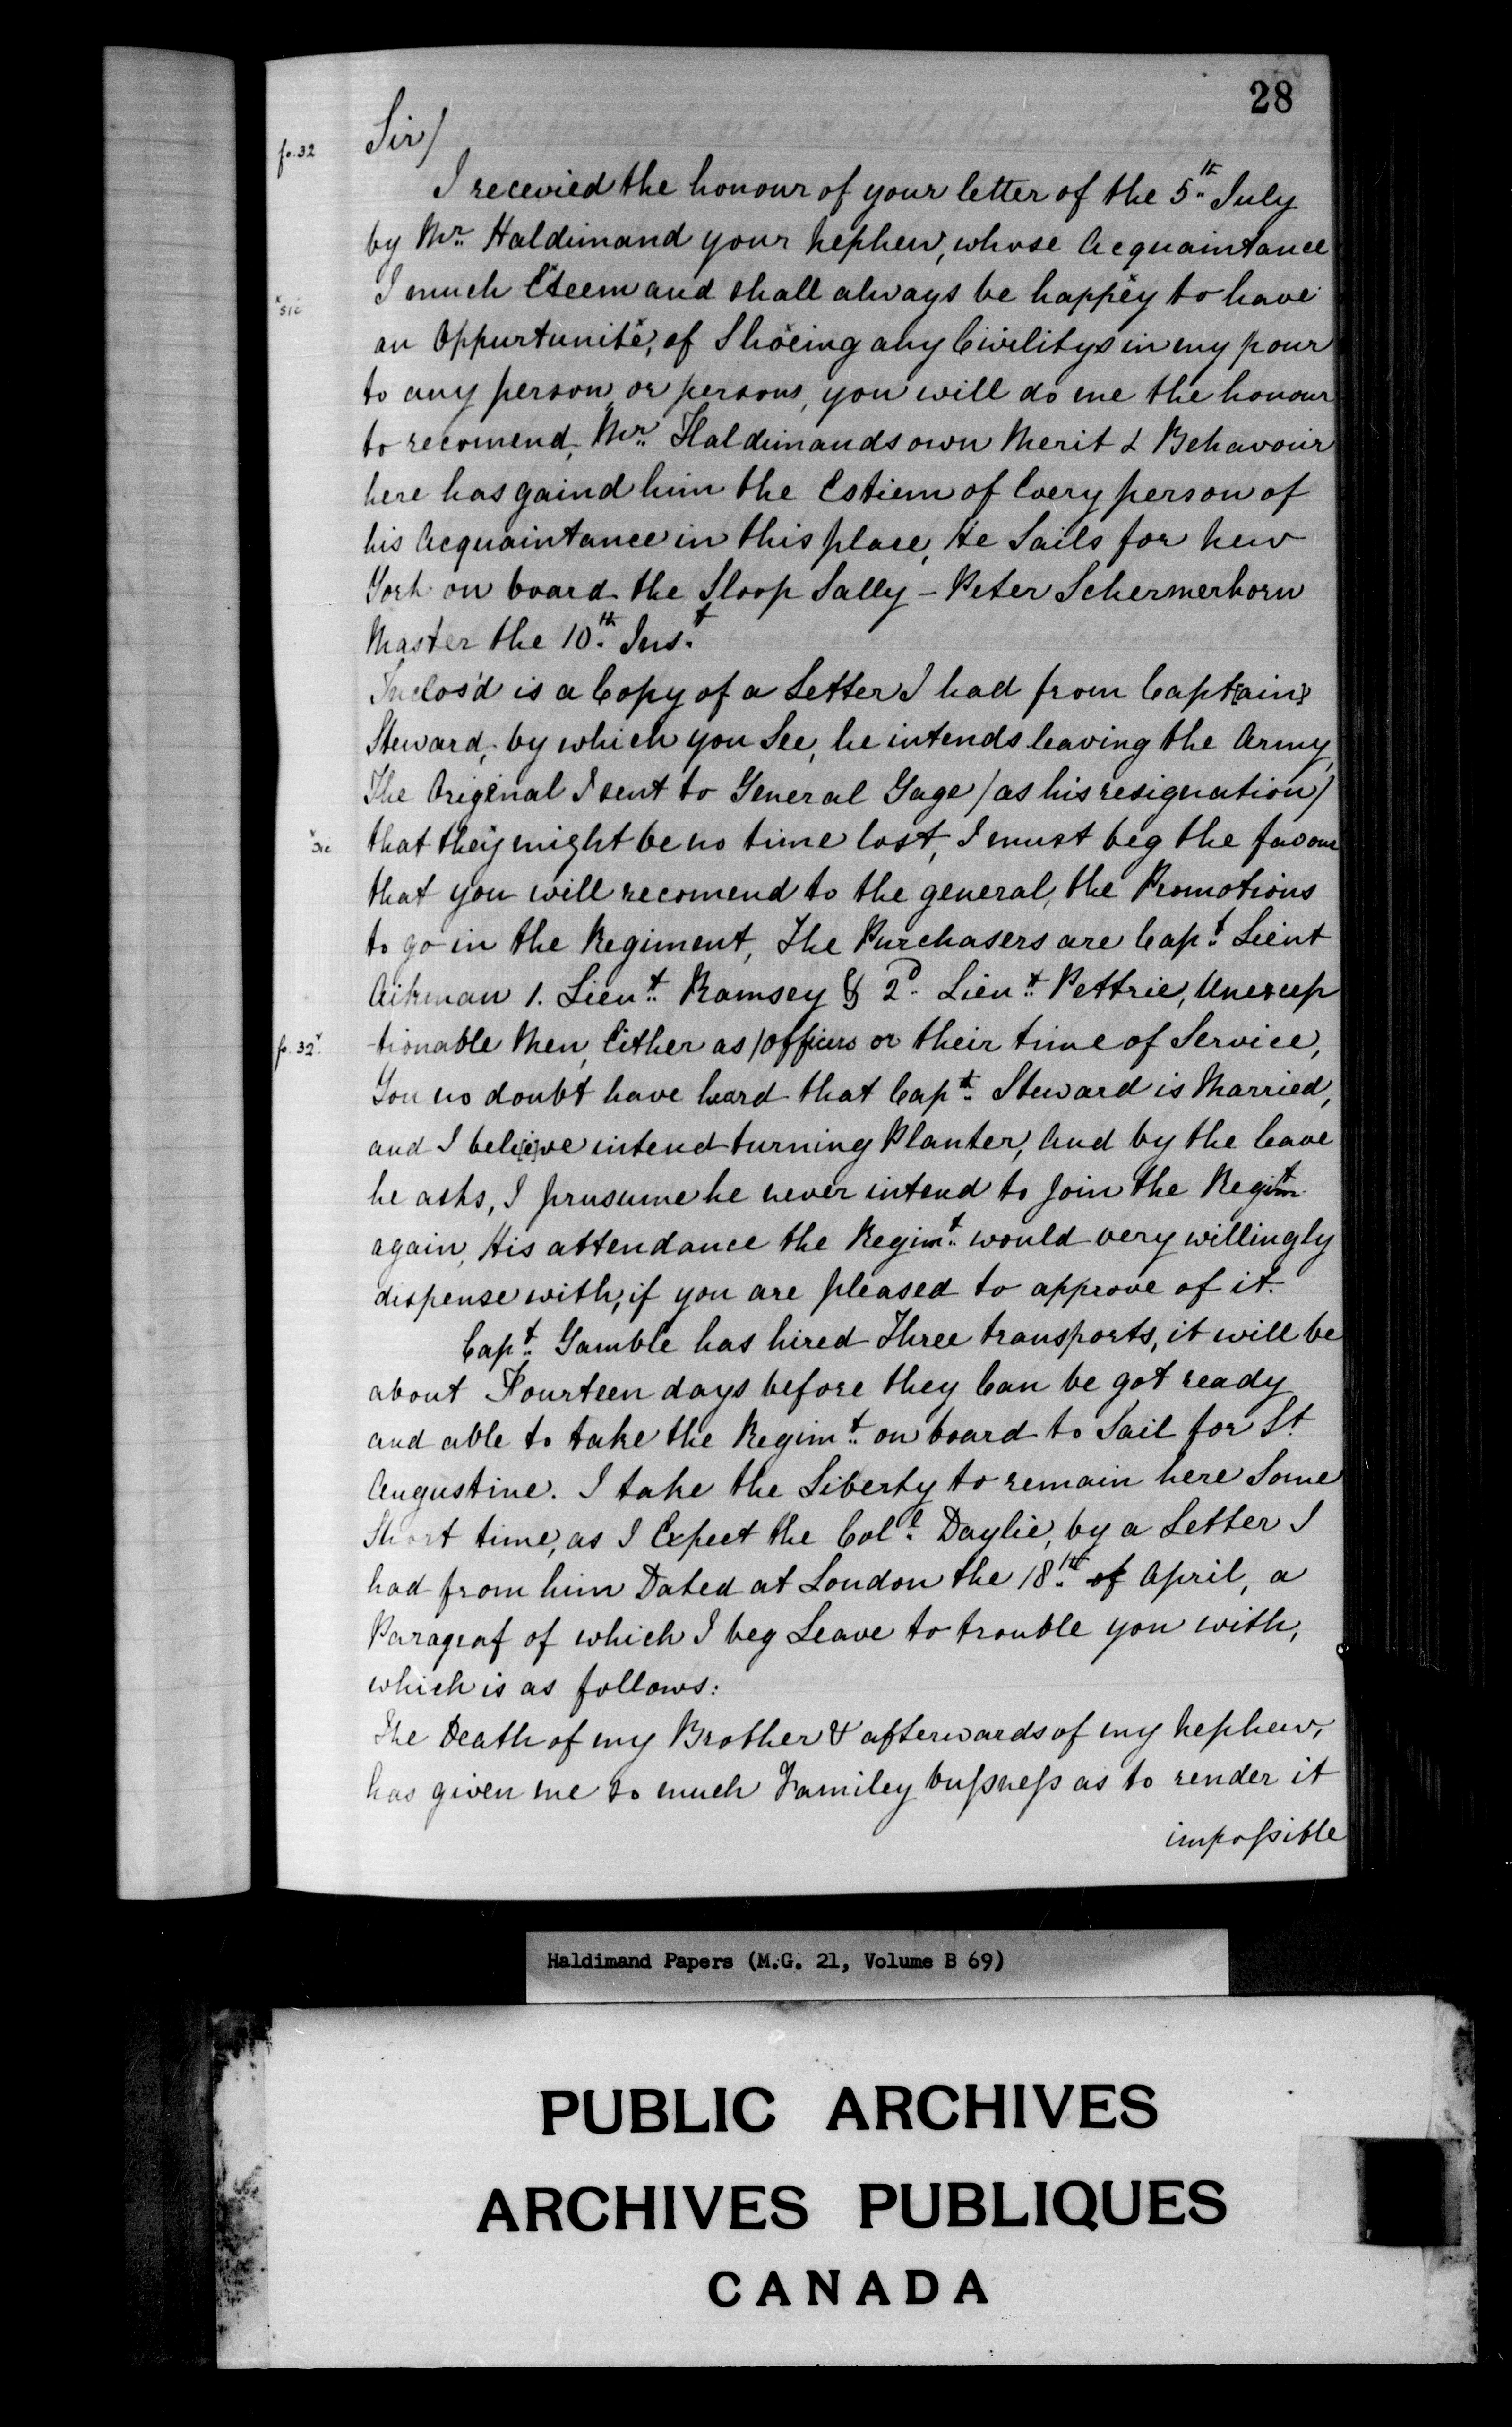 28
fo. 32
Sir/
I recevied the honour of your letter of the 5th July
by Mr. Haldimand your Nephew, whose Acquaintance
sic
I much Esteem and shall always be happey to have
an Oppurtunite, of Shoeing any Civilitys in my pour
to any person, or persons, you will do me the honour
to recomend, Mr. Haldimands own Merit & Behavour
here has gaind him the Estiem of Every person of
his Acquaintance in this place, He Sails for New
York on board the Sloop Sally - Peter Schermerhorn
Master the 10th. Inst.
Inclos'd is a Copy of a Letter I had from Capt[ain]
Steward, by which you See, he intends leaving the Army,
The Original I sent to General Gage / as his resignation /
sic
that they might be no time lost, I must beg the favour
that you will recomend to the general, the Promotions
to go in the Regiment, The Purchasers are Capt. Lieut
Aikman 1. Lieut. Ramsey & 2d. Lieut. Pettrie, Unexcep
fo. 32v.
-tionable Men, Either as / officers or their time of Service,
You no doubt have heard that Capt. Steward is Married,
and I bel[ie]ve intend turning Planter, And by the leave
he asks, I prusume he never intend to Join the Regimt.
again, His attendance the Regimt. would very willingly
dispense with, if you are pleased to approve of it.
Capt. Gamble has hired Three transports, it will be
about Fourteen days before they Can be got ready
and able to take the Regimt. on board to Sail for St.
Augustine. I take the Liberty to remain here Some
Short time, as I Expect the Coll. Daylie, by a Letter I
had from him Dated at London the 18th of April, a
Paragraf of which I beg Leave to trouble you with,
which is as follows:
The Death of my Brother & afterwards of my Nephew,
has given me so much Familey bussness as to render it
impossible
Haldimand Papers (M.G. 21, Volume B 69)
PUBLIC ARCHIVES
ARCHIVES PUBLIQUES
CANADA